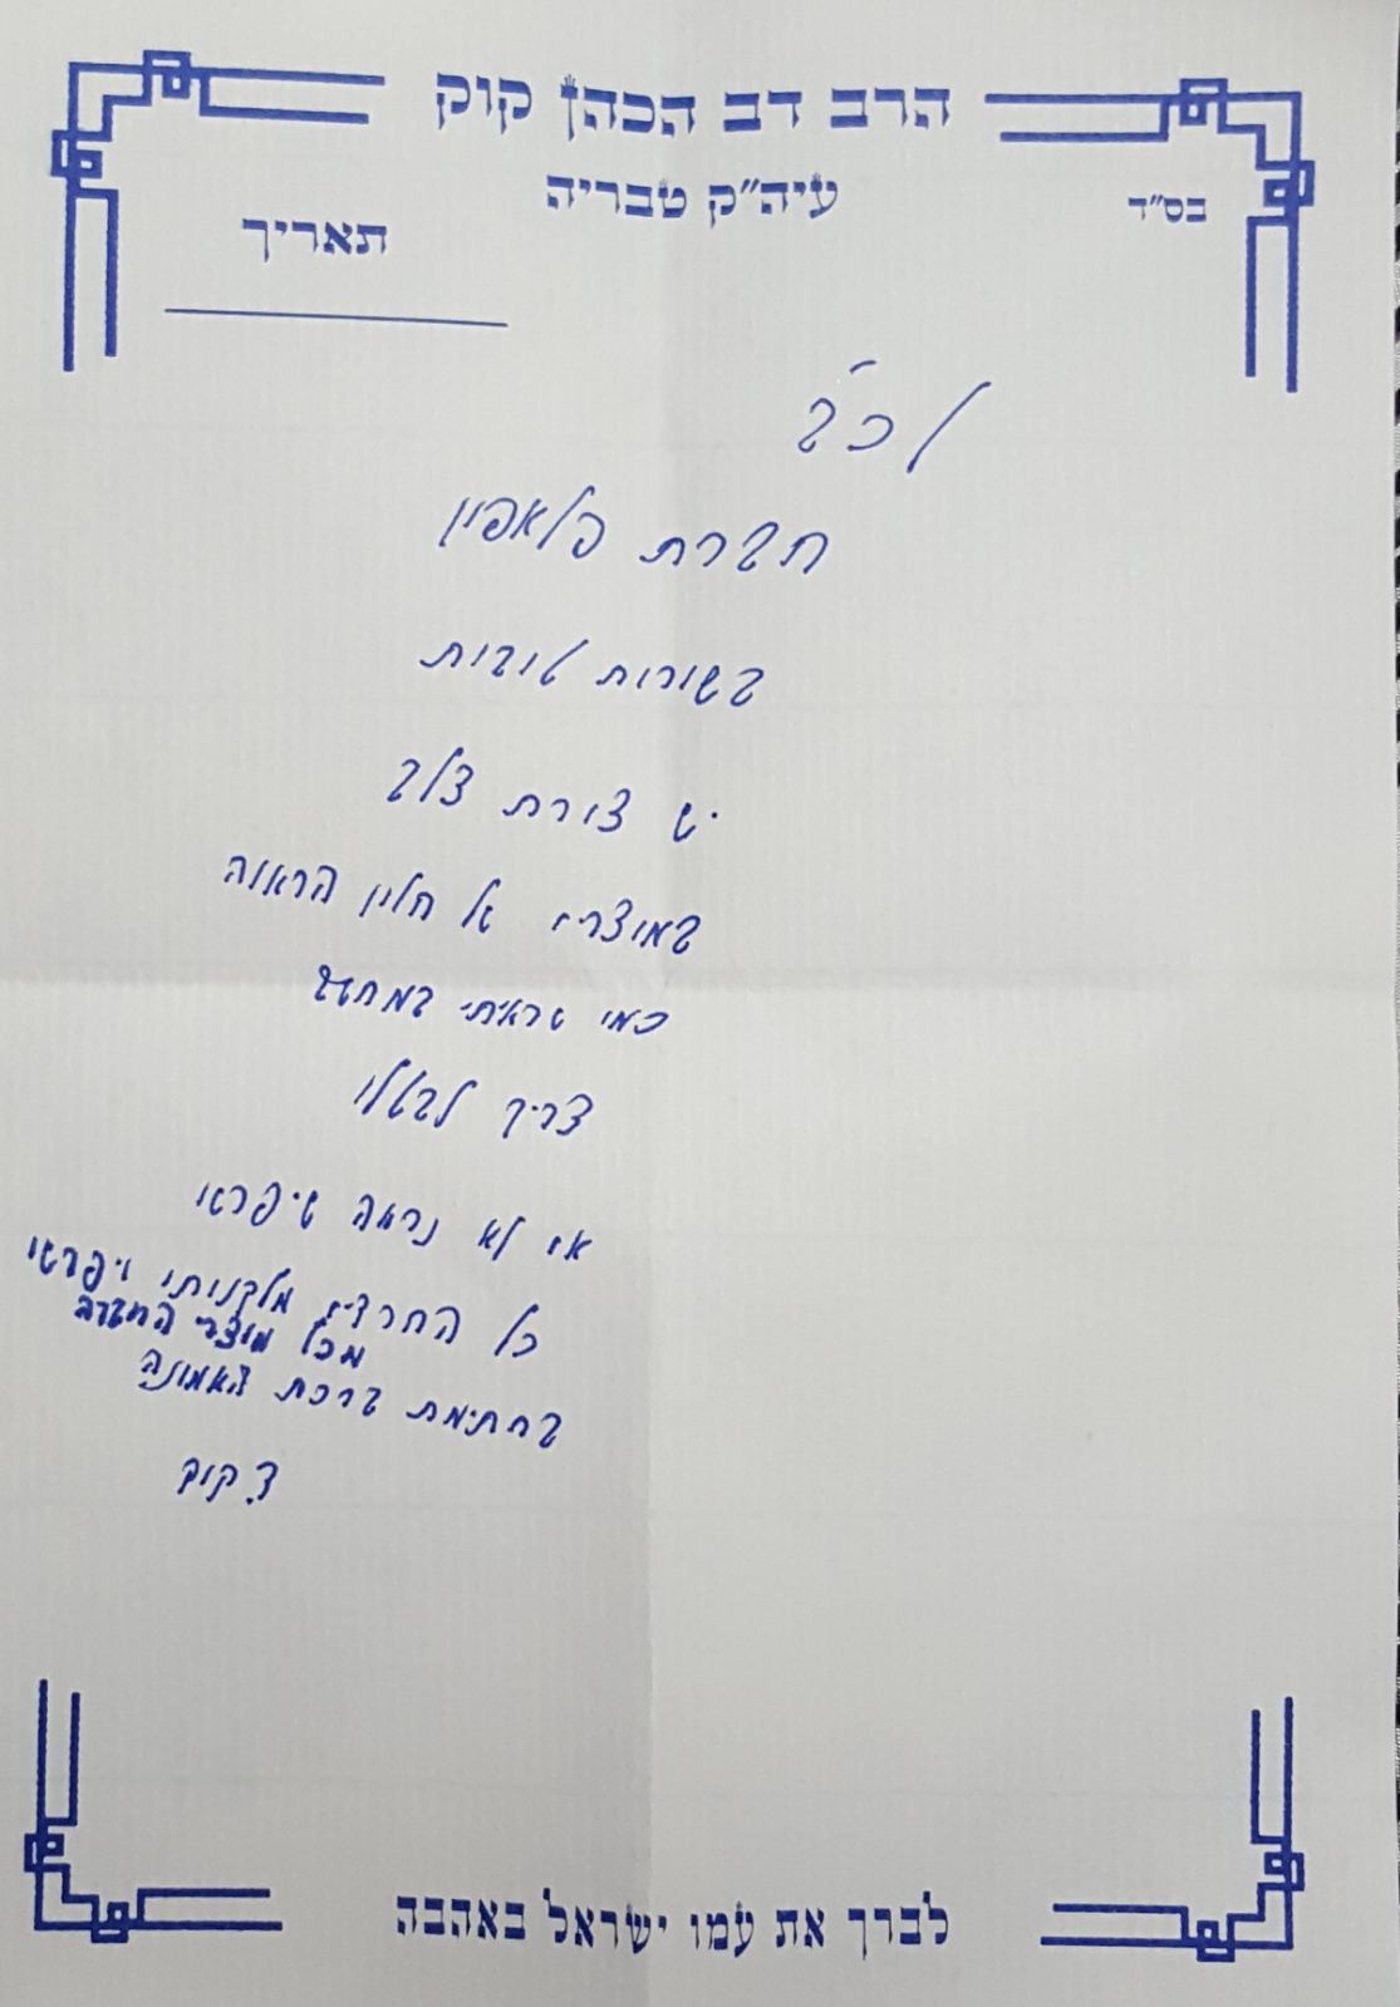 הרב דב הכהן קוק
עיה"ק טבריה
בס"ד
תאריך
לכב'
חברת פלאפון
בשורות טובות
יש צורת צלב
במוצרים אל חלון הראווה
כמו שראיתי במחשב
צריך לבטלו
אם לא נראה שיפרשו
כל החרדים מלקנותו ויפרשו
מכל מוצרי החברה
בחתימת ברכת האמונה
ד. קוק
לברך את עמו ישראל באהבה